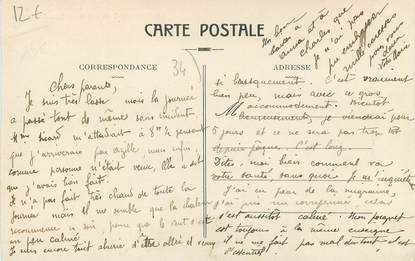 12 €
CARTE POSTALE
CORRESPONDANCE
34
ADRESSE
Chers parents,
Je suis très lasse mais la journée
a passé tout de même sans incident.
Mme Sicard m'attendait à 8h. Je pensait
que j'arriverais pas qu'elle
comme personne n'était venu, elle a dit
que j'avais bien fait.
Il n'a pas fait très chaud de toute la
journée mais il me semble que la chaleur
recommence ce soir, parce que le vent s'est
un peu calmé.
Je suis encore tout ahurie d'être allée et revenu
si brusquement. C'est vraiment
bien peu, mais avec ce gros
M accommodement. Bientôt
heureusement, je viendrai pour
5 jours et ce ne sera pas trop tôt
C'est long.
Dites-moi bien comment va
votre santé sans quoi je m'inquiète
j'ai eu peur de la migraine,
j'ai pris un et
s'est aussitôt calmé. Mon poignet
est toujours à la même enseigne
il ne me fait pas mal du tout c'est
l'essentiel.
Un bon
baiser à
Charles que
je n'ai pas
pu embrasser
mille caresses
pour vous
deux